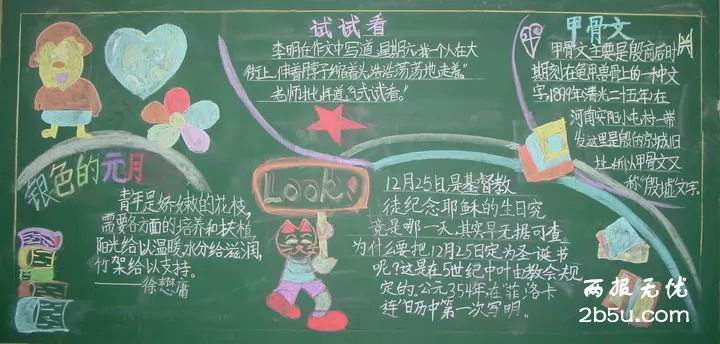 试试看
李明在作文中写道,星期六我一个人在大
街上,伸着脖于缩着头浩浩荡荡地走着。"
老师批道:"试试看。"
甲骨文
甲骨文主要是殷商后时
期刻在龟甲兽骨上的一种文
字,1899年(清光二十五年)在
河南安阳小屯村一带
发这里是殷的京城旧
址,所以甲骨文又
称"殷墟"文字
银色的元月
青年是娇嫩的花枝,
需要各方面的培养和扶植,
阳光给以温暖,水分给滋润,
竹架给以支持。
——徐懋庸
Look
12月25日是基督教
徒纪念耶稣的生日究
竟是哪一天,其实早无据可查。
为什么要把12月25日定为圣诞书
呢?这是在5世纪中叶由教会夫规
定的。公元354年,在菲洛卡
连"日历中第一次写明。
两报无忧
2b5u.com